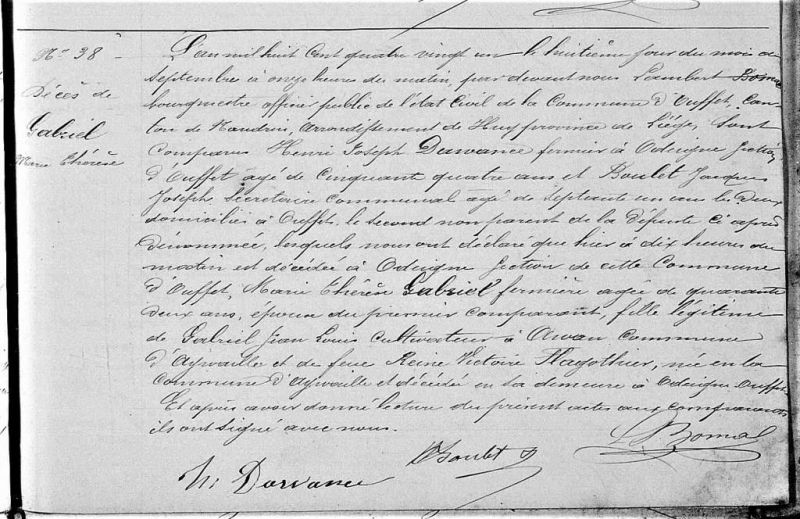 N° 38
Décès de
Gabriel
Marie Thérèse
L'an mil huit cent quatre vingt un le huitième jour du mois de
Septembre à onze heures du matin, par devant nous Lambert Bomal
bourgmestre officier public de l'état Civil de la Commune d'Ouffet, Can-
ton de Nandrin, arrondissement de Huy province de Liège, sont
comparus Henri Joseph Dawance fermier à Odeigne section
d'Ouffet agé de Cinquante quatre ans et Boulet Jacques
Joseph Secrétaire Communal agé de Septante un ans les deux
domiciliés à Ouffet, le second non parent de la défunte ci après
dénommée, lesquels nous ont déclaré que hier à dix heures du
matin est décédée à Odeigne section de cette Commune
d'Ouffet, Marie Thérèse Gabriel fermière agée de quarante
deux ans, épouse du premier comparant, fille légitime
de Gabriel Jean Louis Cultivateur à Awan Commune
d'Aywaille et de feue Reine Victoire Hagothier, née en la
Commune d'Aywaille et décédée en la demeure à Odeigne Ouffet.
Et après avoir donné lecture du présent acte aux comparants
ils ont signé avec nous.
L Bomal
Boulet
H: Dawance